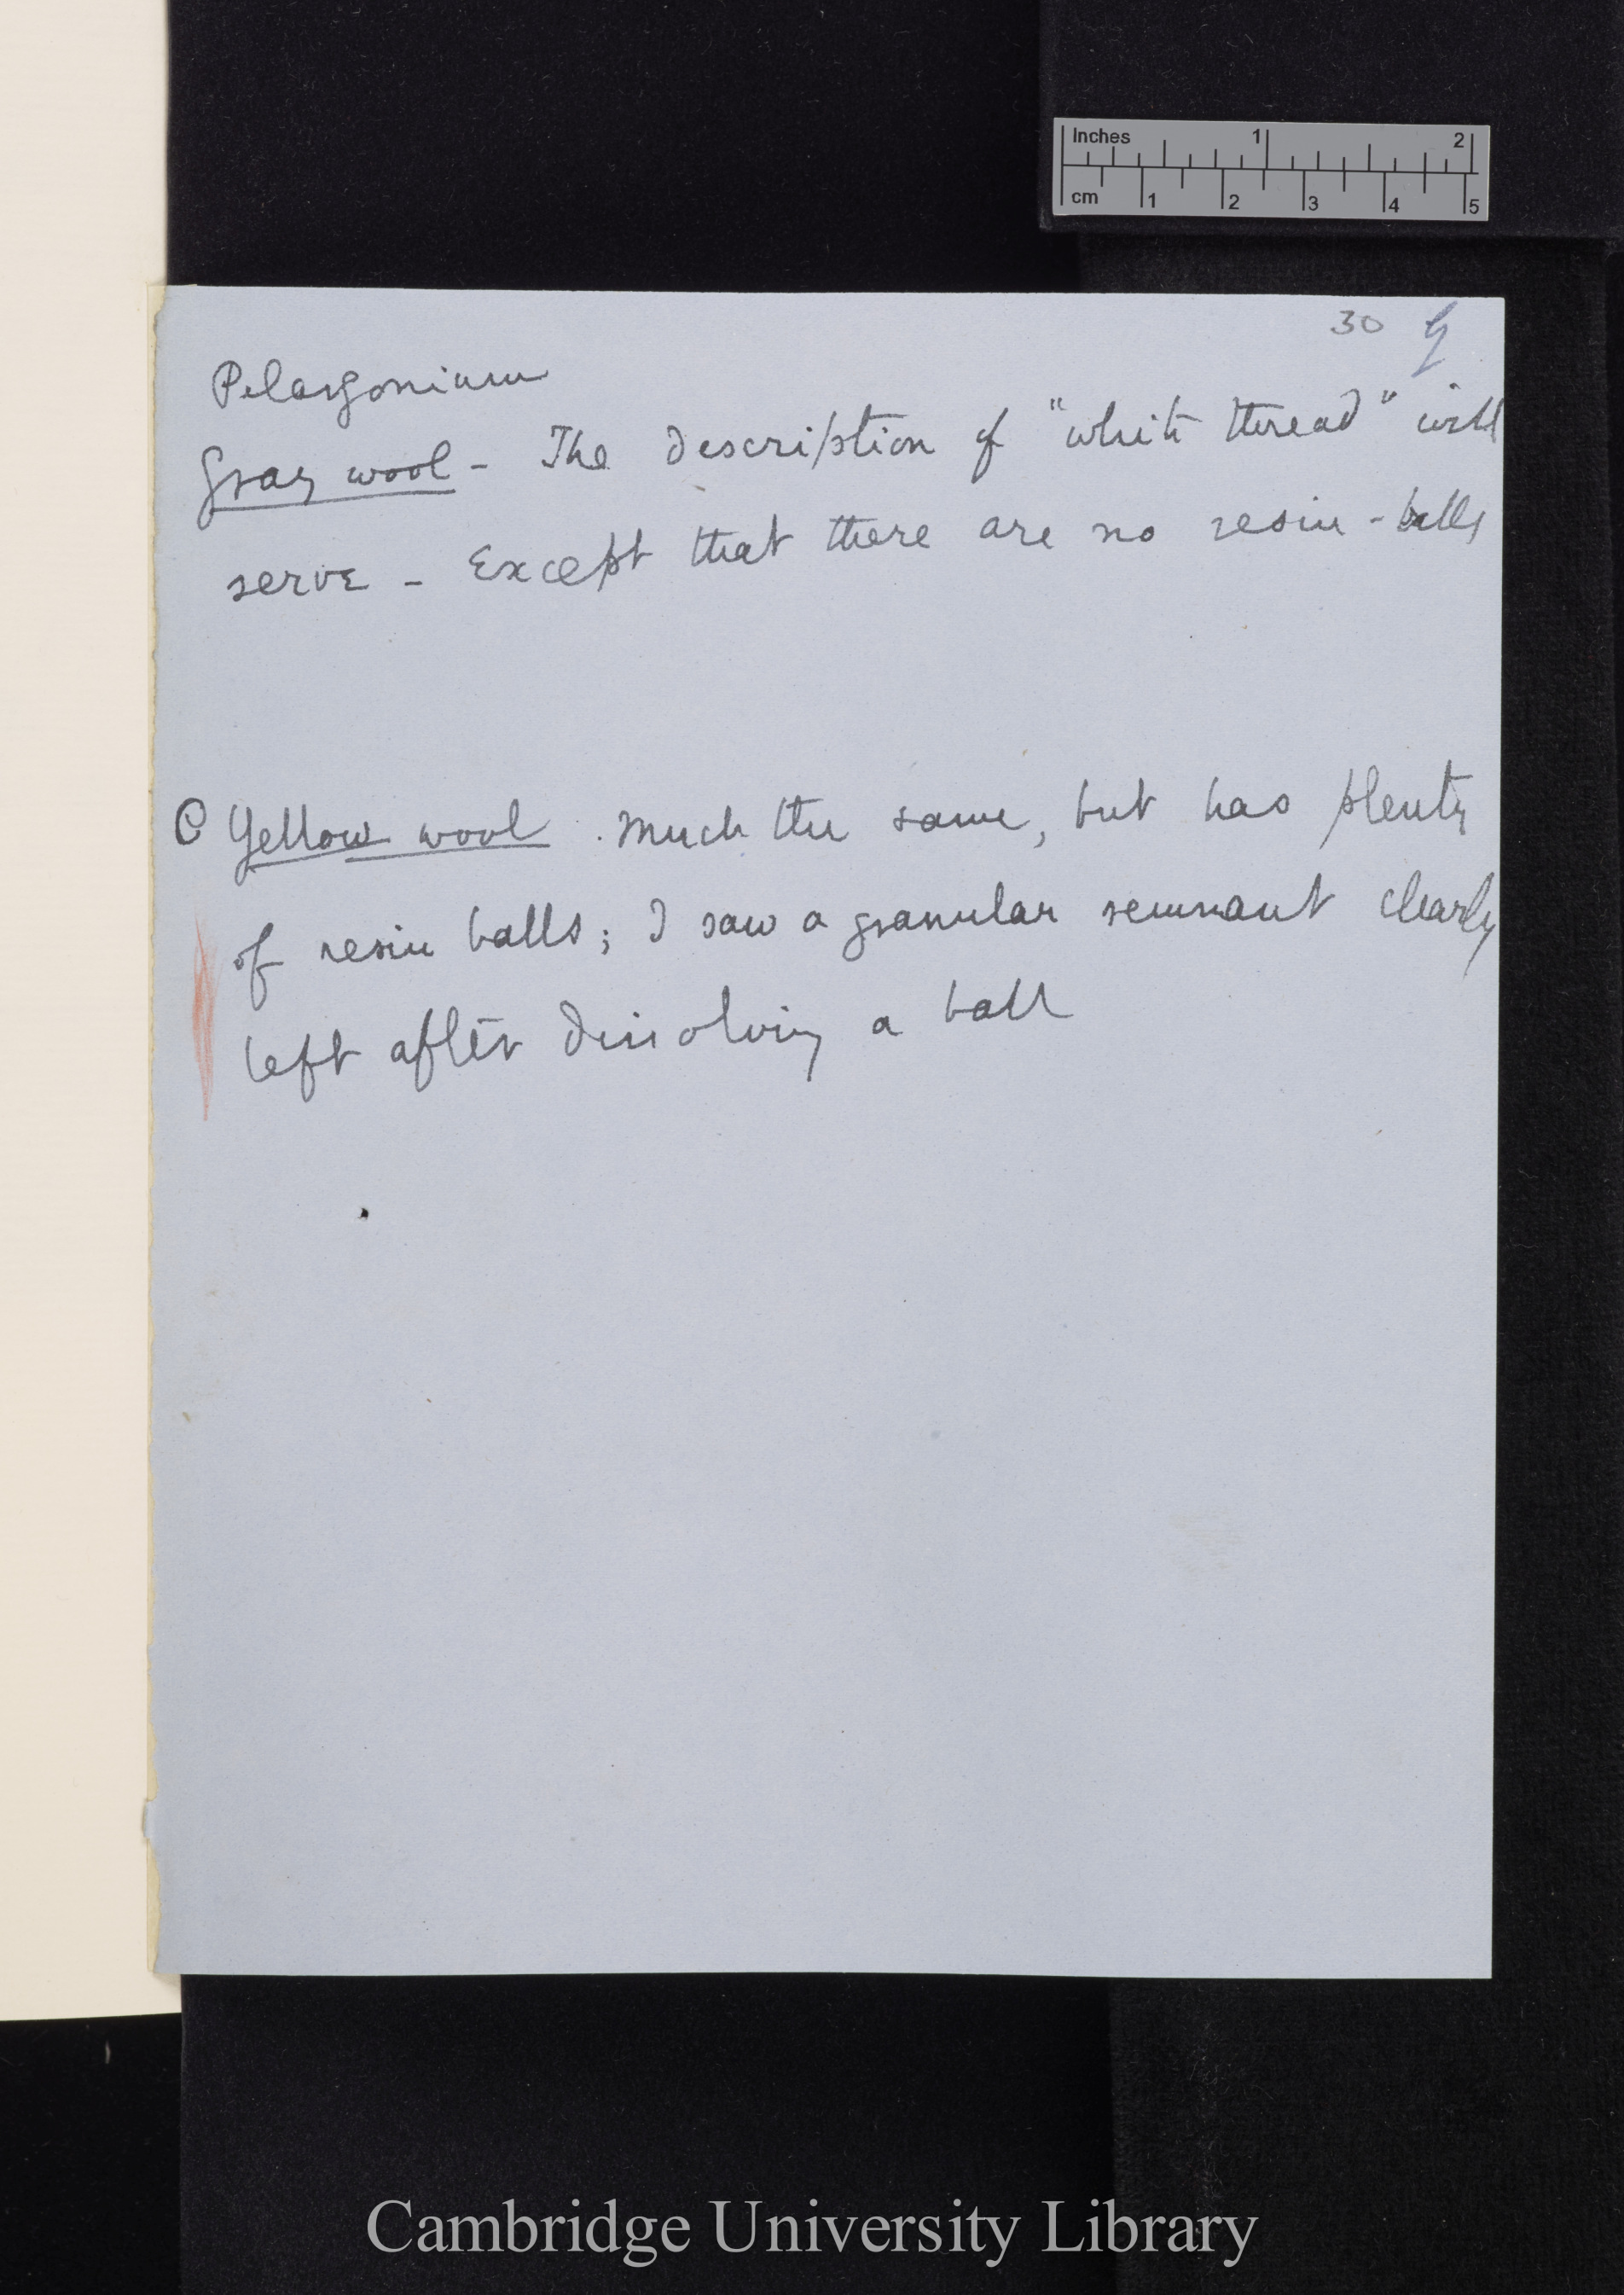 Inches 1 2
cm 1 2 3 4 5
30 G
Pelargonium
Gray wool - The description of "white thread" will
serve - Except that there are no resin-balls
C Yellow wool. Much the same, but has plenty
of resin balls; I saw a granular remnant clearly
left after dissolving a ball
Cambridge University Library